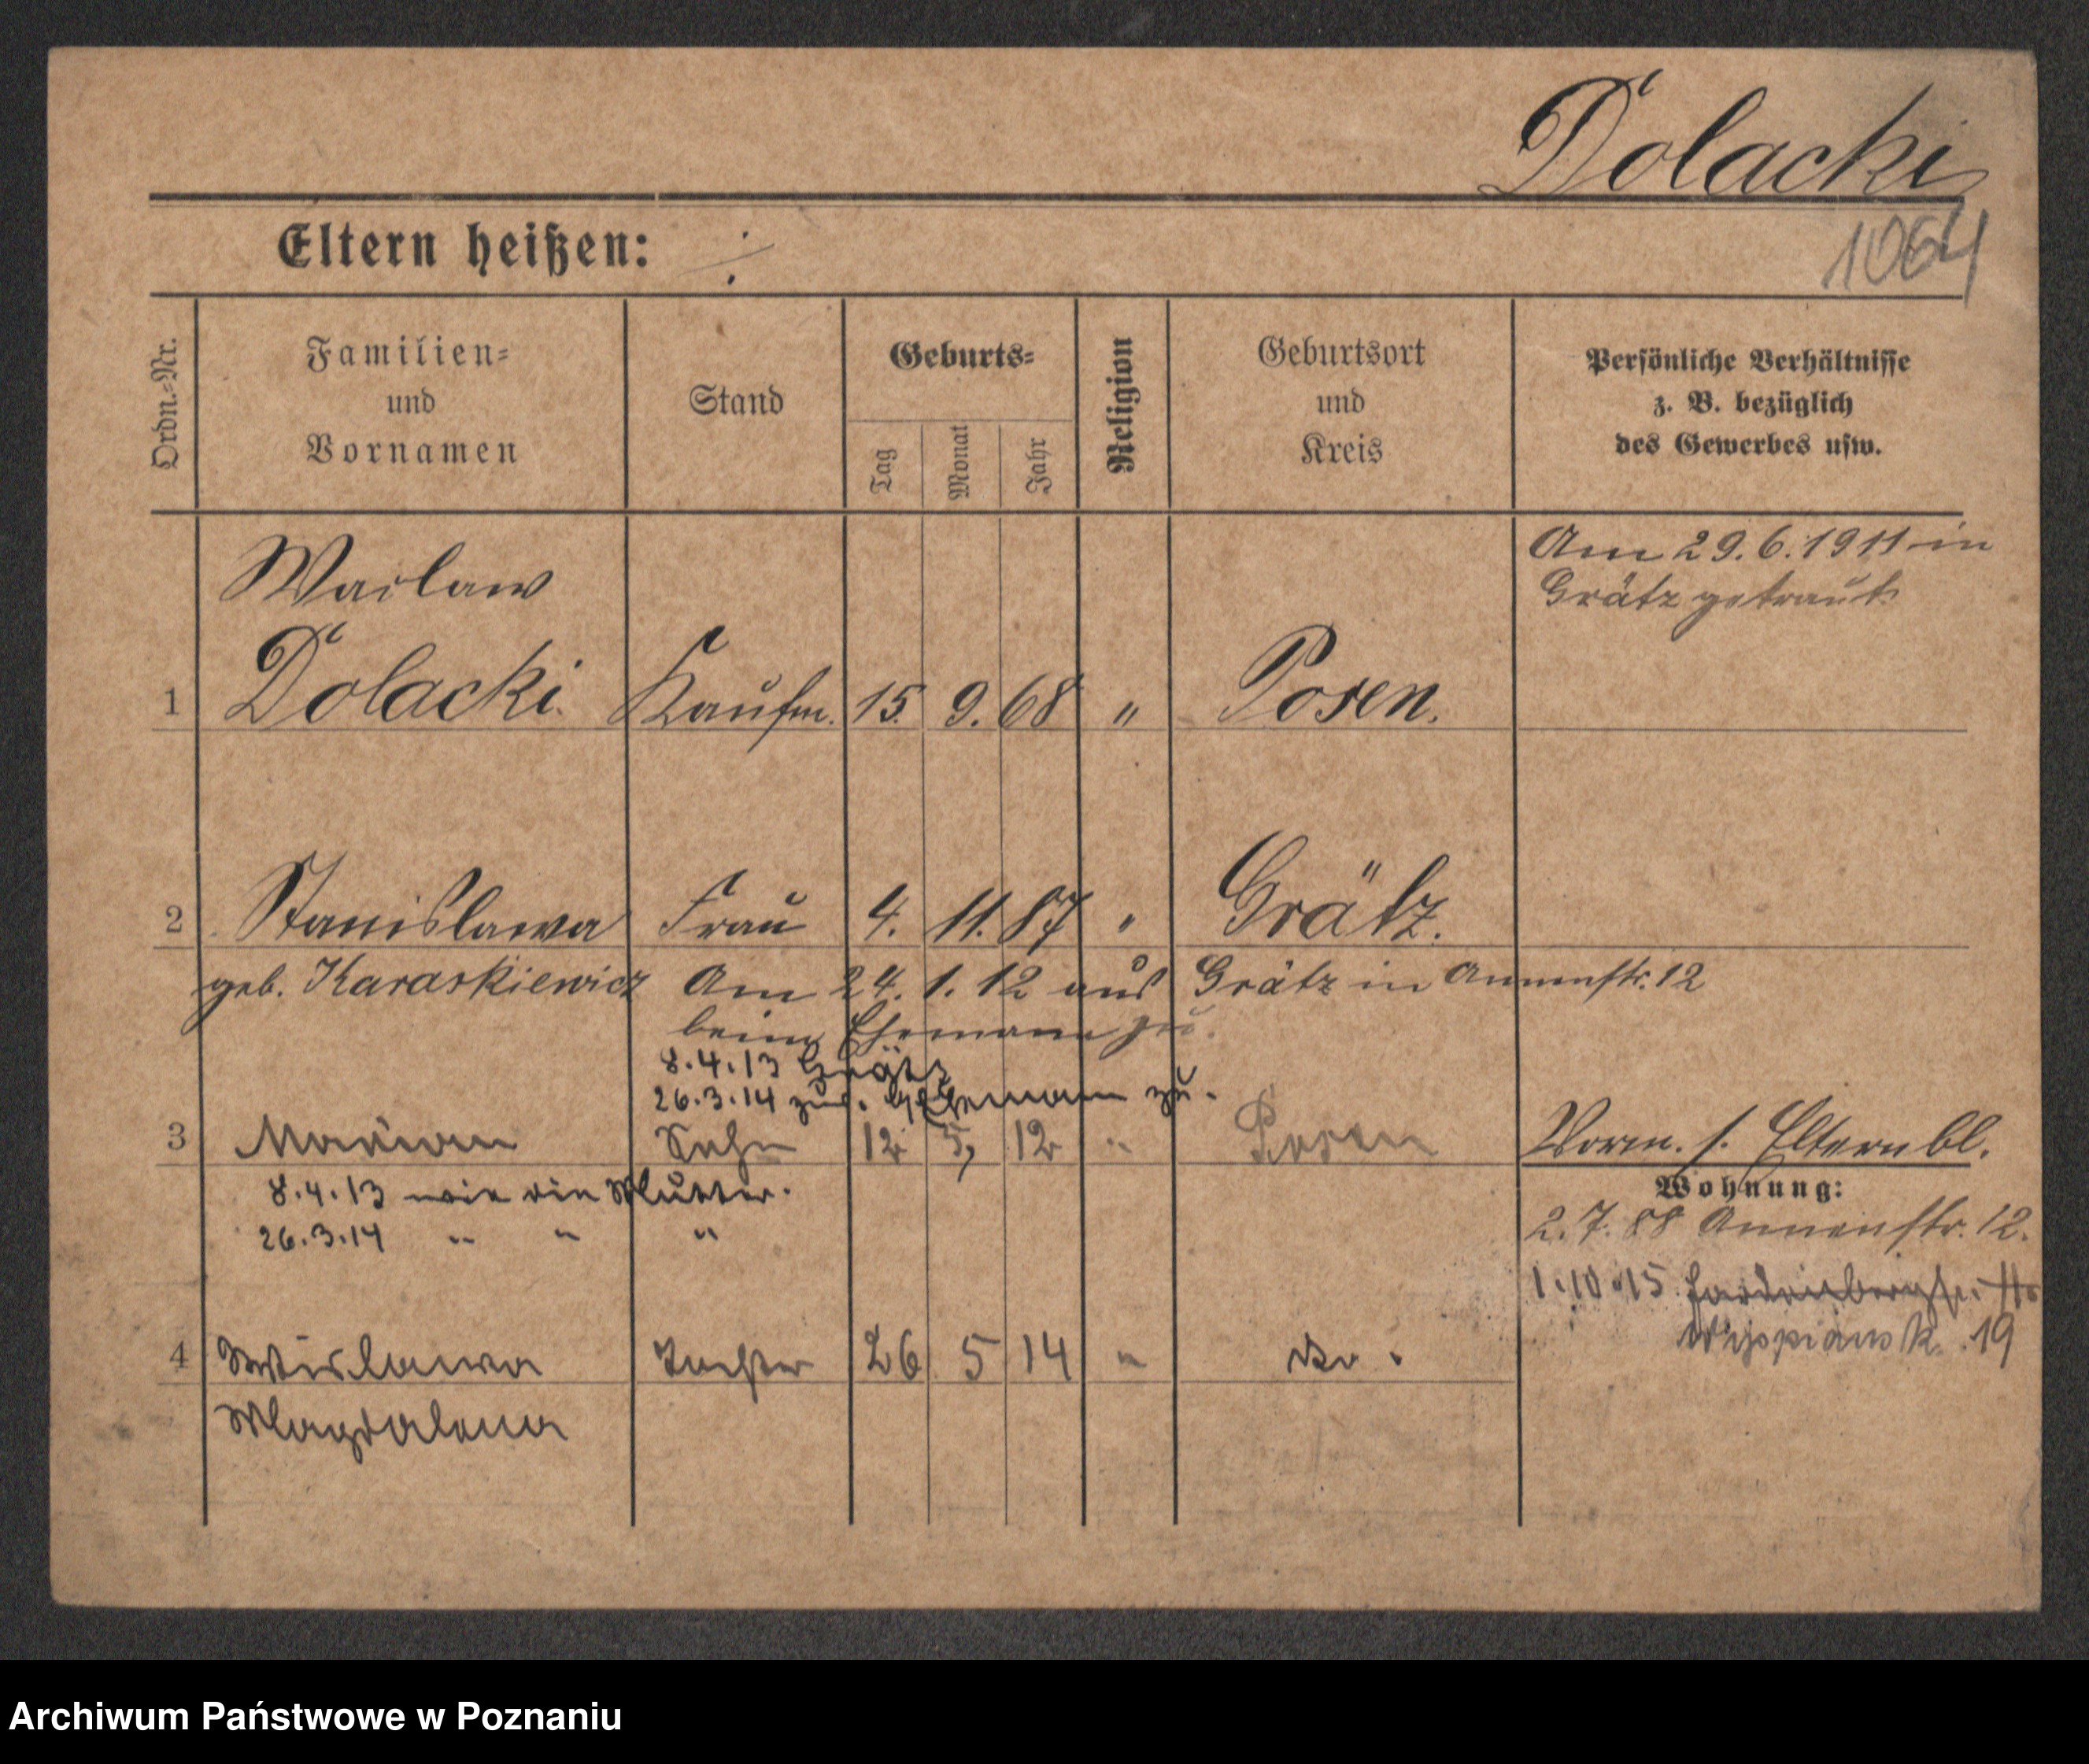 Dolacki
1064
Eltern heißen: ./.
Ordn.-Nr.
Familien-
und
Vornamen
Stand
Geburts-
Tag
Monat
Jahr
Religion
Geburtsort
und
Kreis
Persönliche Verhältnisse
z. B. bezüglich
des Gewerbes usw.
Am 29.6.1911 in
Grätz getraut.
Waclaw
1 Dolacki. Kaufm. 15. 9. 68 " Posen.
2 Stanislawa Frau 4. 11. 87 " Grätz.
geb. Karaskiewicz Am 24. 1. 12 aus Grätz in Annenstr. 12
beim Ehemann zu.
8.4.13 Grätz
26.3.14 zur. Ehemann zu.
3 Marian Sohn 12 5, 12 " Posen
Vorm. s. Elternbl.
8.4.13 wie die Mutter.
26.3.14 " " "
Wohnung:
2.7.88 Annenstr. 12.
1.10.15
Wyspiansk. 19
4 Wieslawa Tochter 26 5 14 " Do.
Magdalena
Archiwum Państwowe w Poznaniu